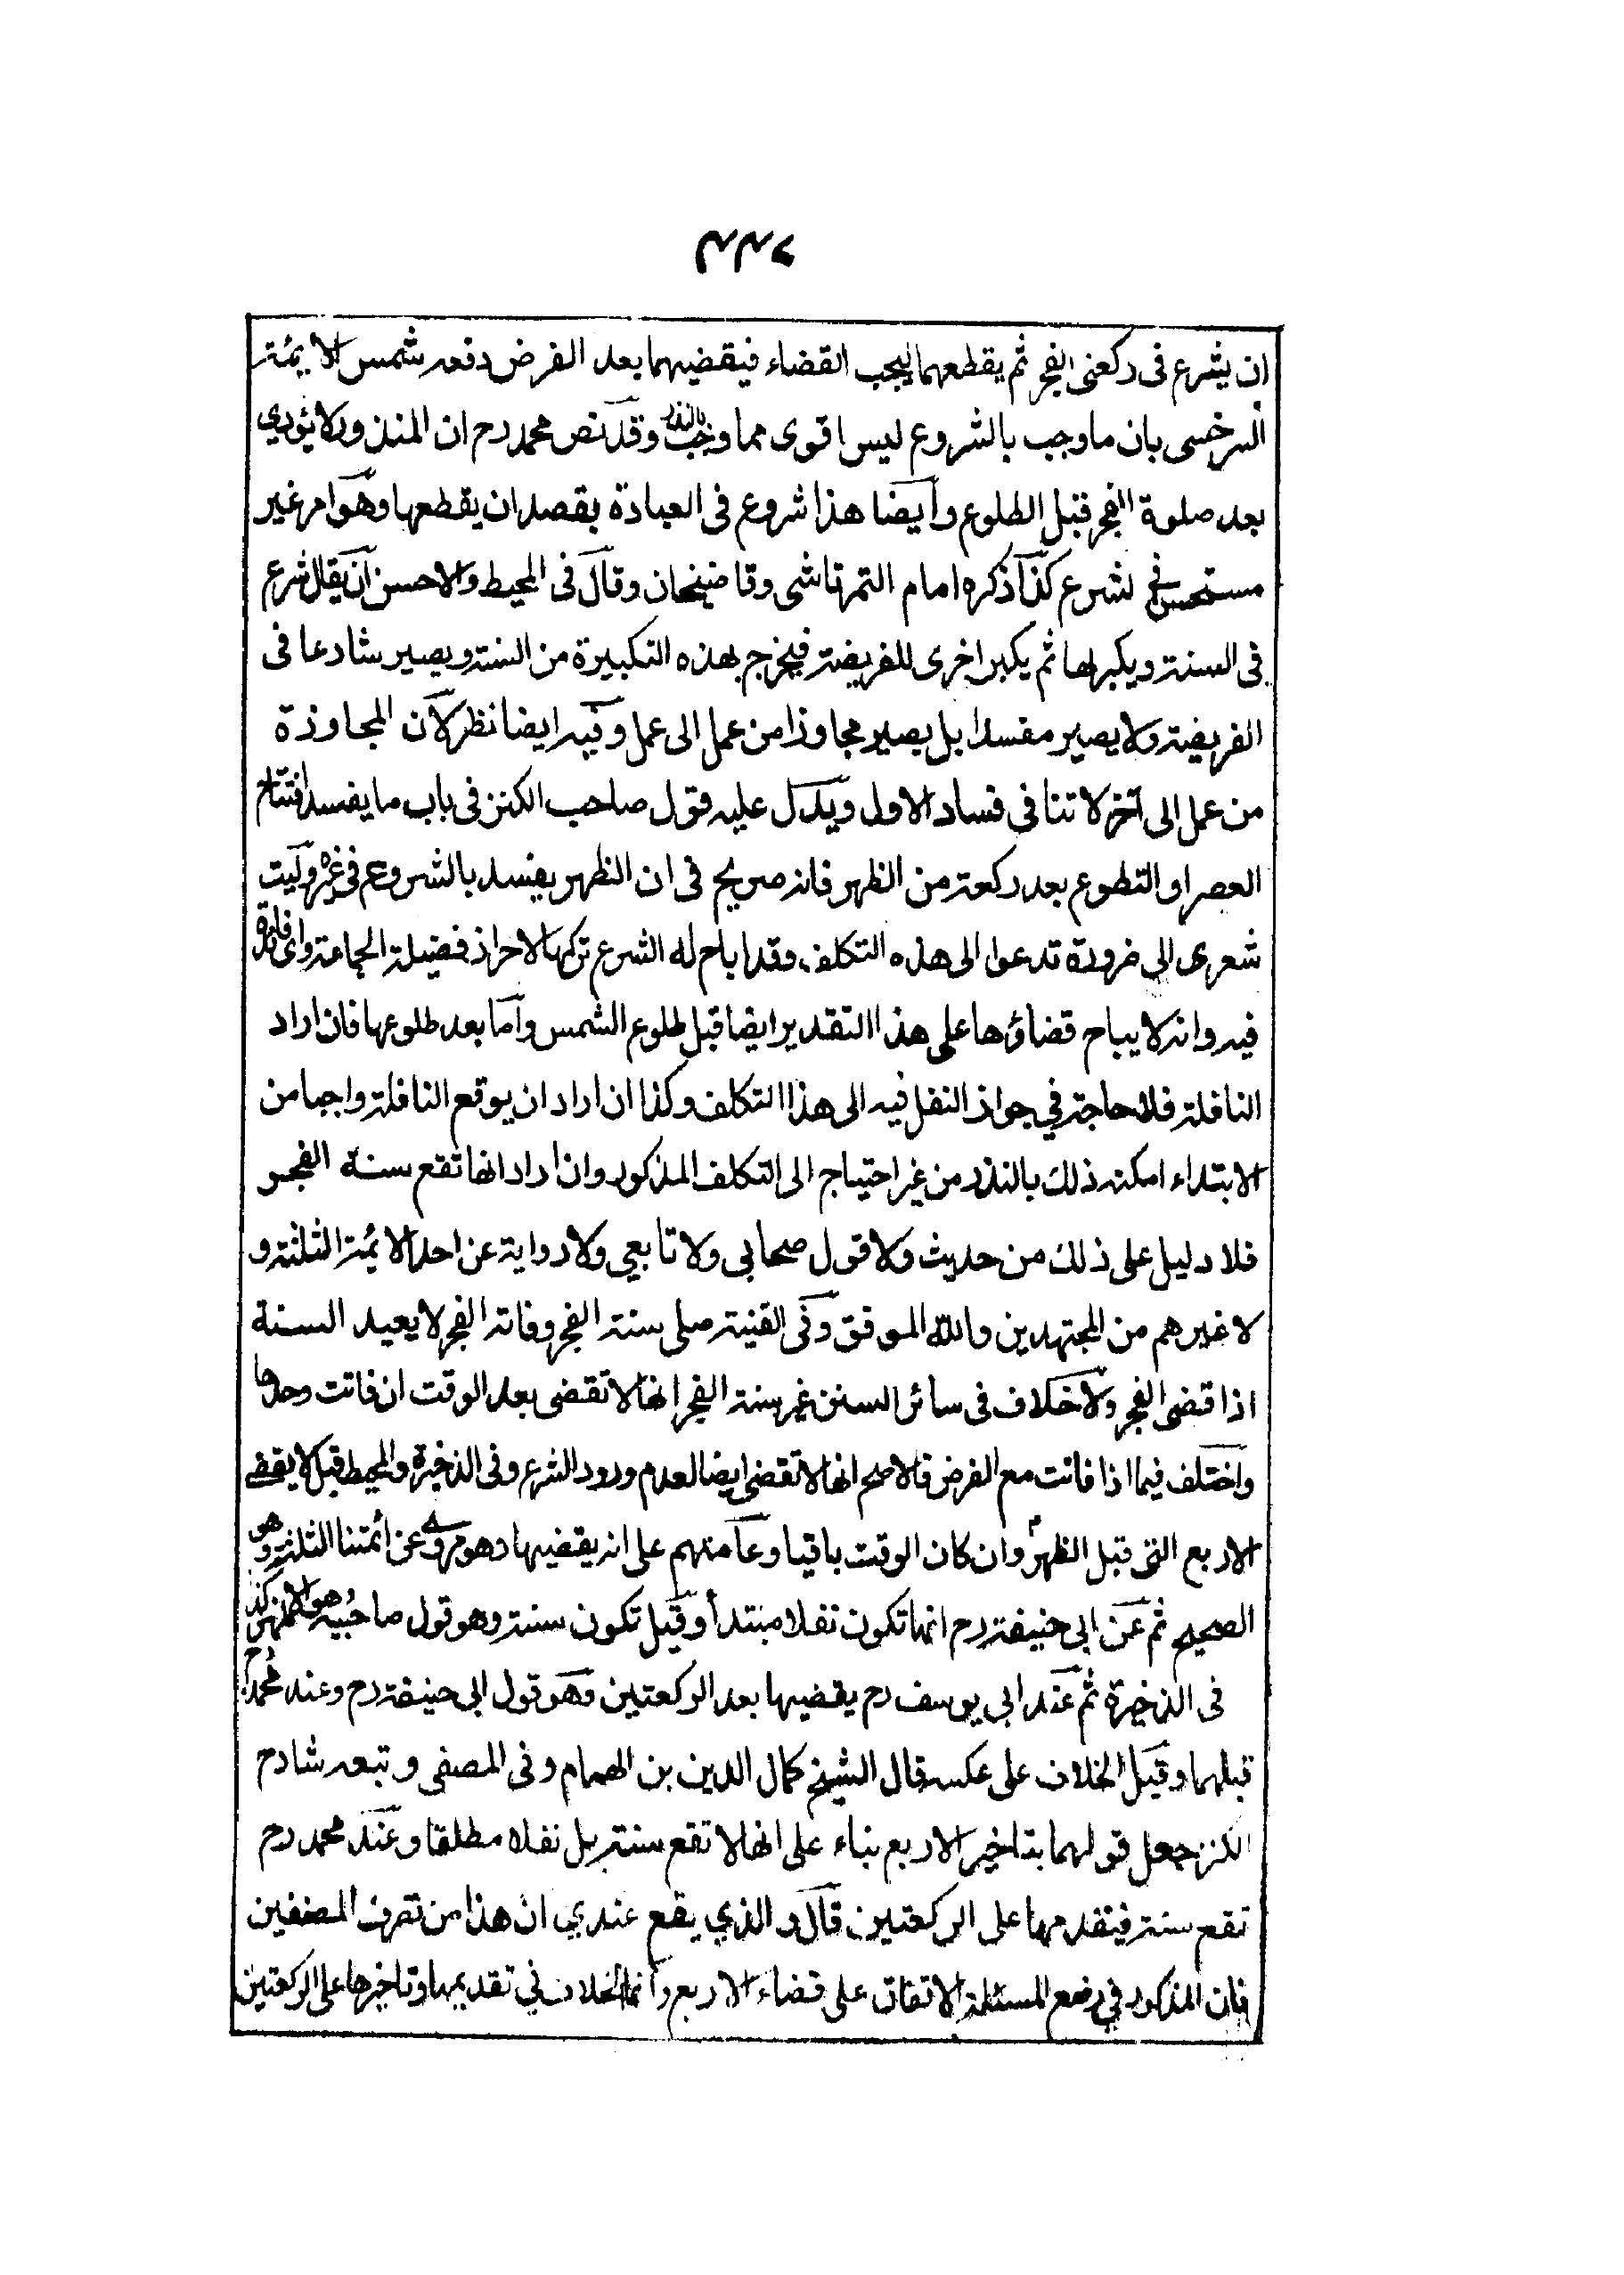 ان يشرع فى ركعتى الفجر ثم يقطعهما ليجب القضاء فيقضيهما بعد الفرض دفعه شمس الايمة
السرخسى بان ما وجب بالشروع ليس اقوى مما وجب بالنذر وقد نص محمد رح ان المنذور لا يؤدي
بعد صلوة الفجر قبل الطلوع وأيضا هذا شروع فى العبادة بقصد ان يقطعها وهو امر غير
مستحسن فى لشرع كذا ذكره امام التمرتاشى وقاضيخان وقال فى المحيط والاحسن ان يقال شرع
فى السنة ويكبر لها ثم يكبر اخرى للفريضة فيخرج بهذه التكبيرة من السنة ويصير شارعا فى
الفريضة ولا يصير مفسدا بل يصير مجاوزا من عمل الى عمل وفيه ايضا نظر لان المجاوزة
من عمل الى آخر لا تنافى فساد الاول ويدل عليه قول صاحب الكنز فى باب ما يفسد افتتاح
العصر او التطوع بعد ركعة من الظهر فانه صريح فى ان الظهر يفسد بالشروع فى غيره وليت
شعرى الى ضرورة تدعوا الى هذه التكلف وقد اباح له الشرع تركها لاحراز فضيلة الجماعة واى فائدة
فيه وانه لا يباح قضاؤها على هذا التقدير ايضا قبل طلوع الشمس وأما بعد طلوعها فان اراد
النافلة فلا حاجة في جواز النفل فيه الى هذا التكلف وكذا ان اراد ان يوقع النافلة واجبا من
الابتداء امكنه ذلك بالنذر من غير احتياج الى التكلف المذكور وان اراد انها تقع سنة الفجر
فلا دليل على ذلك من حديث ولا قول صحابى ولا تابعي ولا رواية عن احد الائمة الثلثة و
لا غيرهم من المجتهدين والله الموفق وفى القنية صلى سنة الفجر وفاته الفجر لا يعيد السنة
اذا قضى الفجر ولا خلاف فى سائر السنن غير سنة الفجر انها لا تقضى بعد الوقت ان فاتت وحدها
واختلف فيما اذا فاتت مع الفرض فالاصح انها لا تقضى ايضا لعدم ورود الشرع وفى الذخيرة والمحيط قيل لا يقضى
الاربع التى قبل الظهر وان كان الوقت باقيا وعامتهم على انه يقضيها وهو مروى عن أئمتنا الثلثة وهو
الصحيح ثم عن ابى حنيفة رح انها تكون نفلا مبتدأ وقيل تكون سنة وهو قول صاحبيه هو الاظهر كذا
فى الذخيرة ثم عند ابى يوسف رح يقضيها بعد الركعتين وهو قول ابى حنيفة رح وعند محمد رح
قبلهما وقيل الخلاف على عكسه قال الشيخ كمال الدين بن الهمام وفى المصفى وتبعه شارح
الكنز جعل قولهما بتاخير الاربع بناء على انها لا تقع سنة بل نفلا مطلقا وعند محمد رح
تقع سنة فيتقدمها على الركعتين قال والذي يقع عندي ان هذا من تصرف المصنفين
فان المذكور في وضع المسئلة الاتفاق على قضاء الاربع وأنما الخلاف في تقديمها وتاخيرها على الركعتين